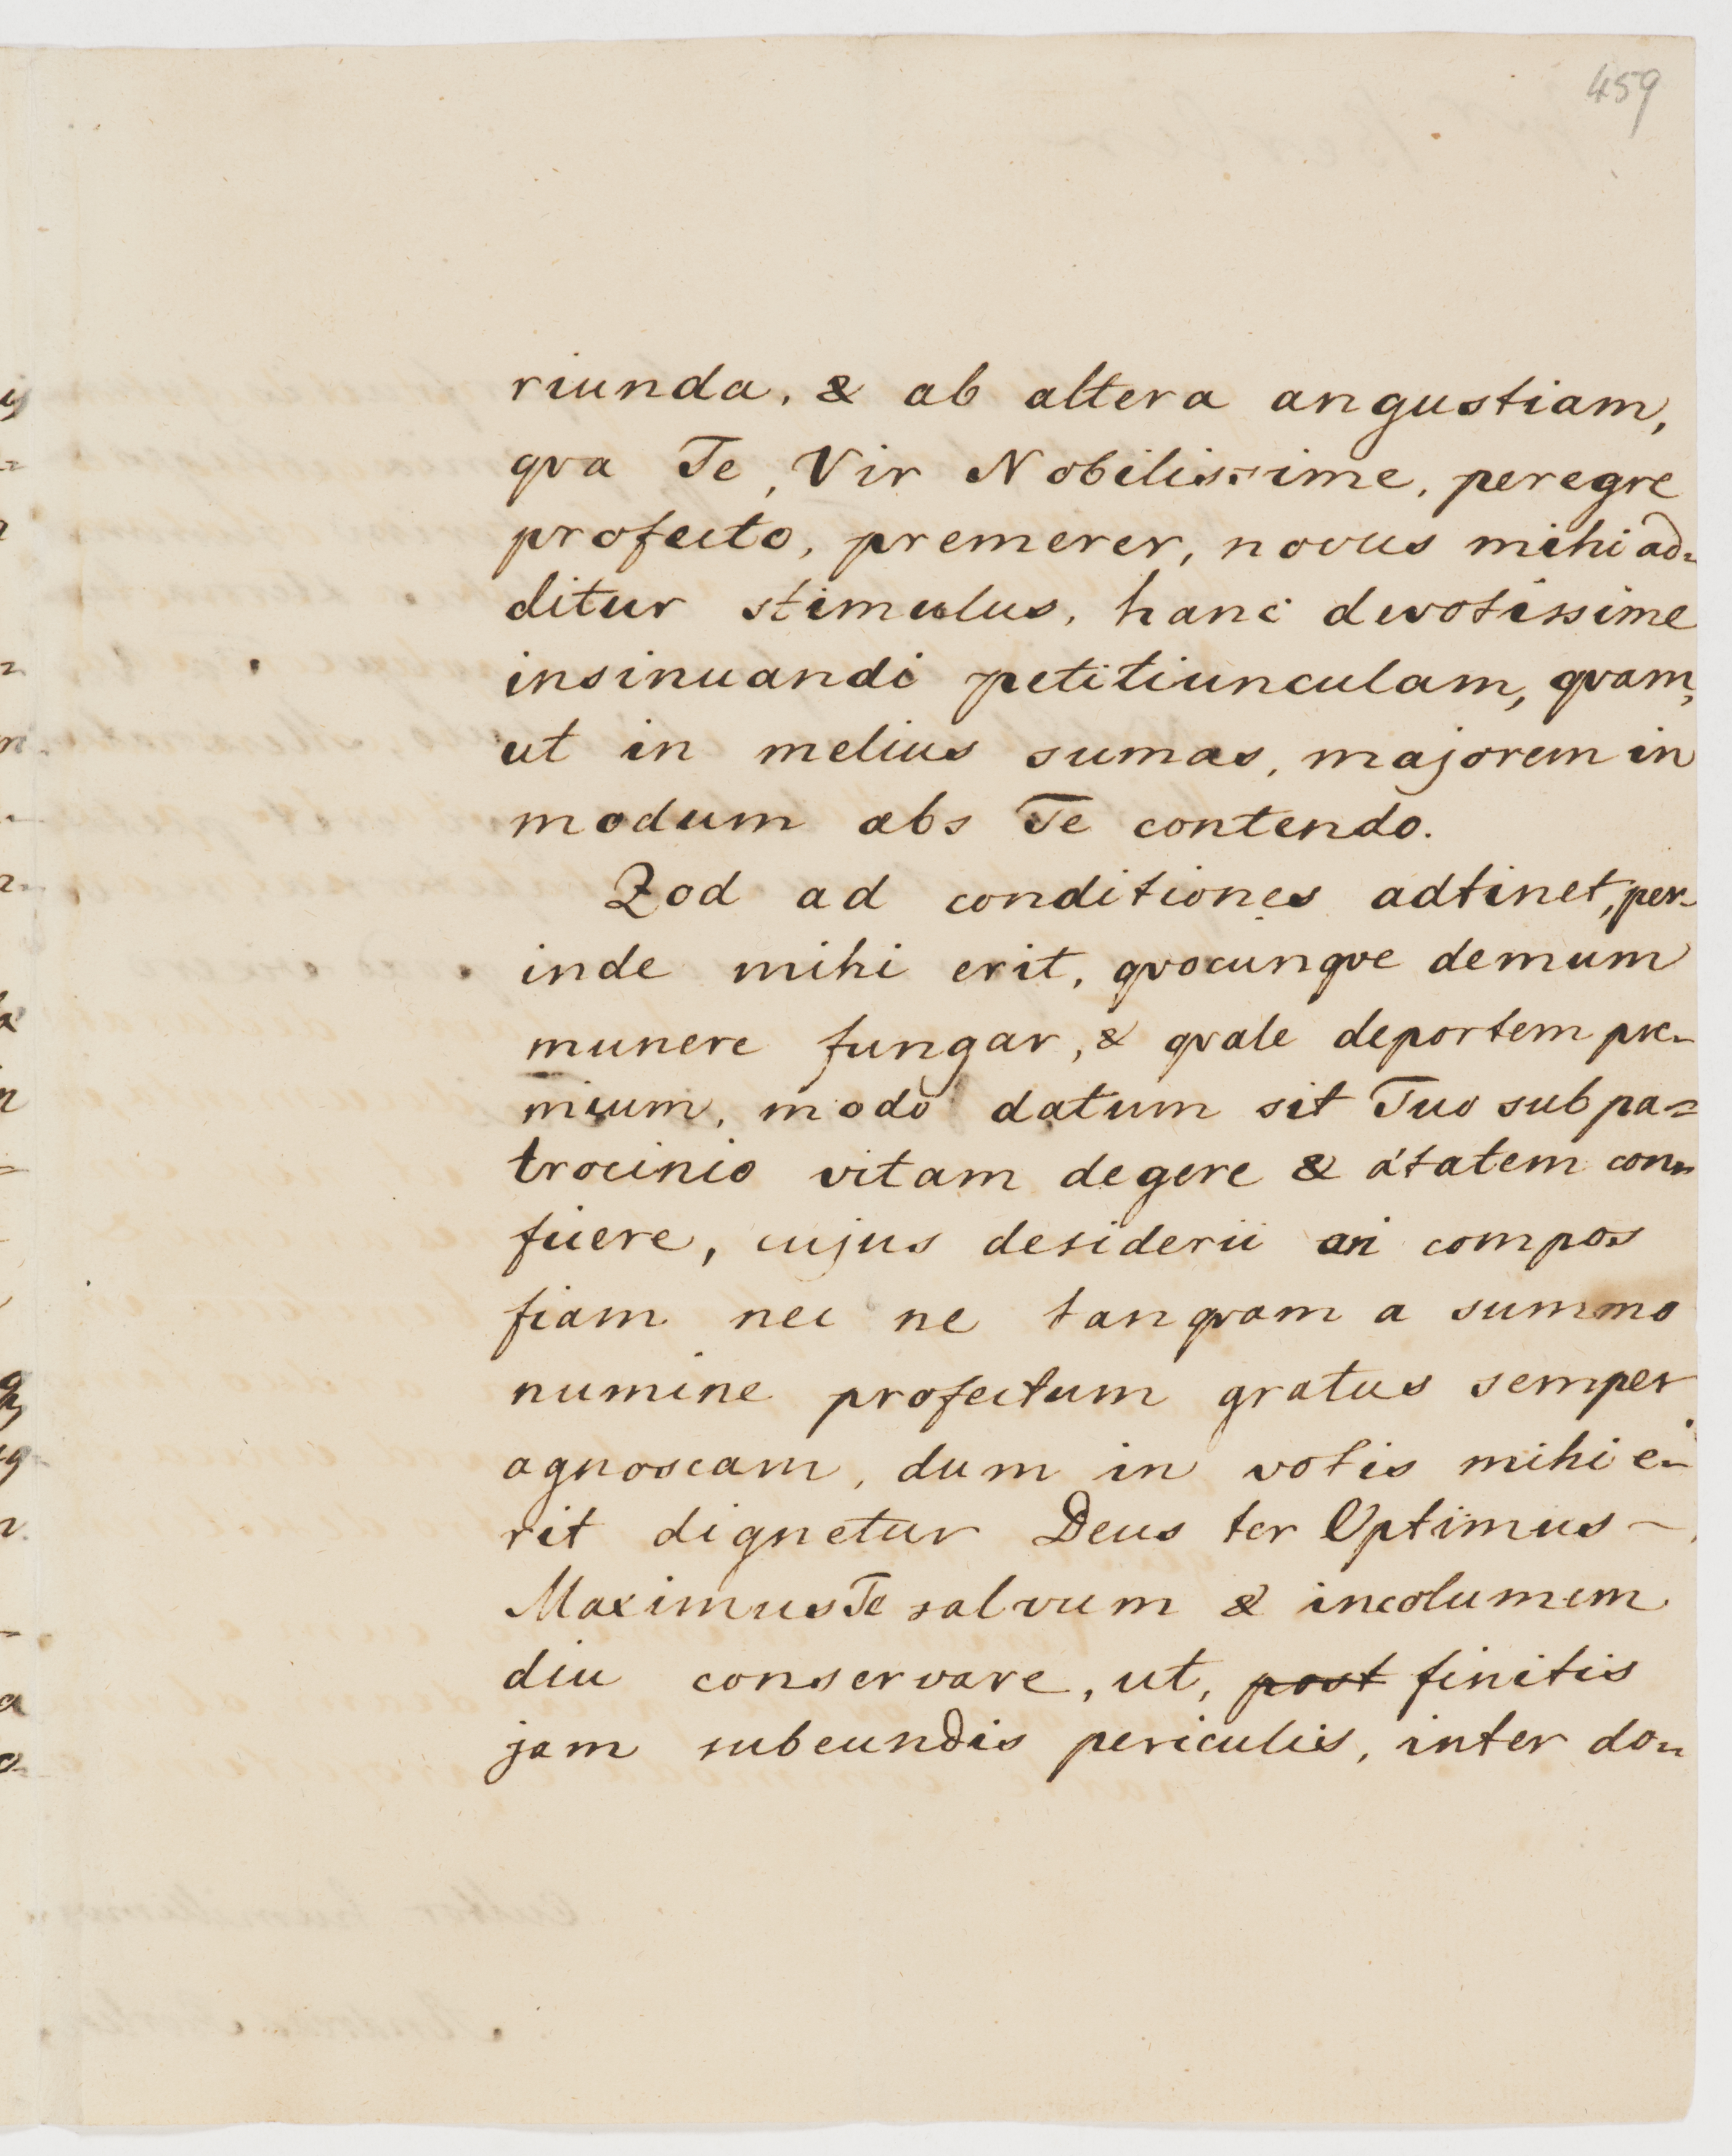 459
riunda, & ab altera angustiam,
qva Te, Vir Nobilissime, peregre
profecto, premerer, novus mihi ad-
ditur stimulus, hanc devotissime
insinuandi petitiunculam, qvam,
ut in melius sumas, majorem in
modum abs Te contendo.
Qvod ad conditiones adtinet, per-
inde mihi erit, qvocunqve demum
munere fungar, & qvale deportem præ-
mium, modo datum sit Tuo sub pa-
trocinio vitam degere & ætatem con-
ficere, cujus desiderii an compos
fiam nec ne tanqvam a summo
numine profectum gratus semper
agnoscam, dum in votis mihi e-
rit dignetur Deus ter Optimus
Maximus Te salvum & incolumem
diu conservare, ut, post finitis
jam subeundis periculis, inter do-